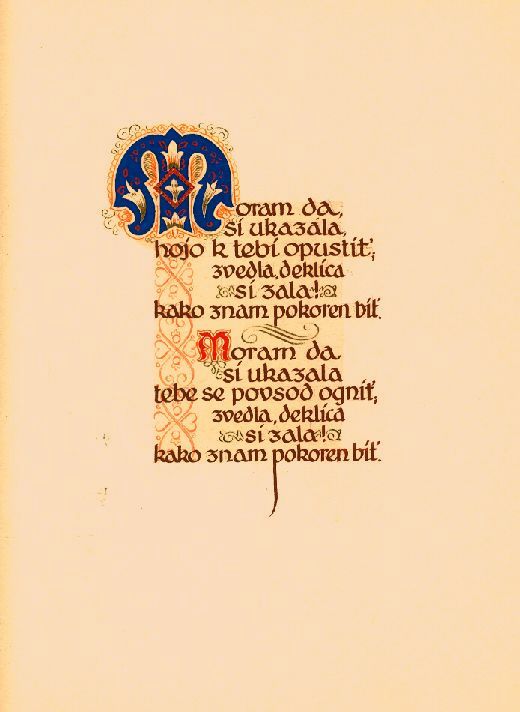 Moram da,
si ukazala,
hojo k tebi opustit',
zvedla, deklica
si zala!
kako znam pokoren bit'.
Moram da
si ukazala
tebe se povsod ognit',
zvedla, deklica
si zala!
kako znam pokoren bit'.